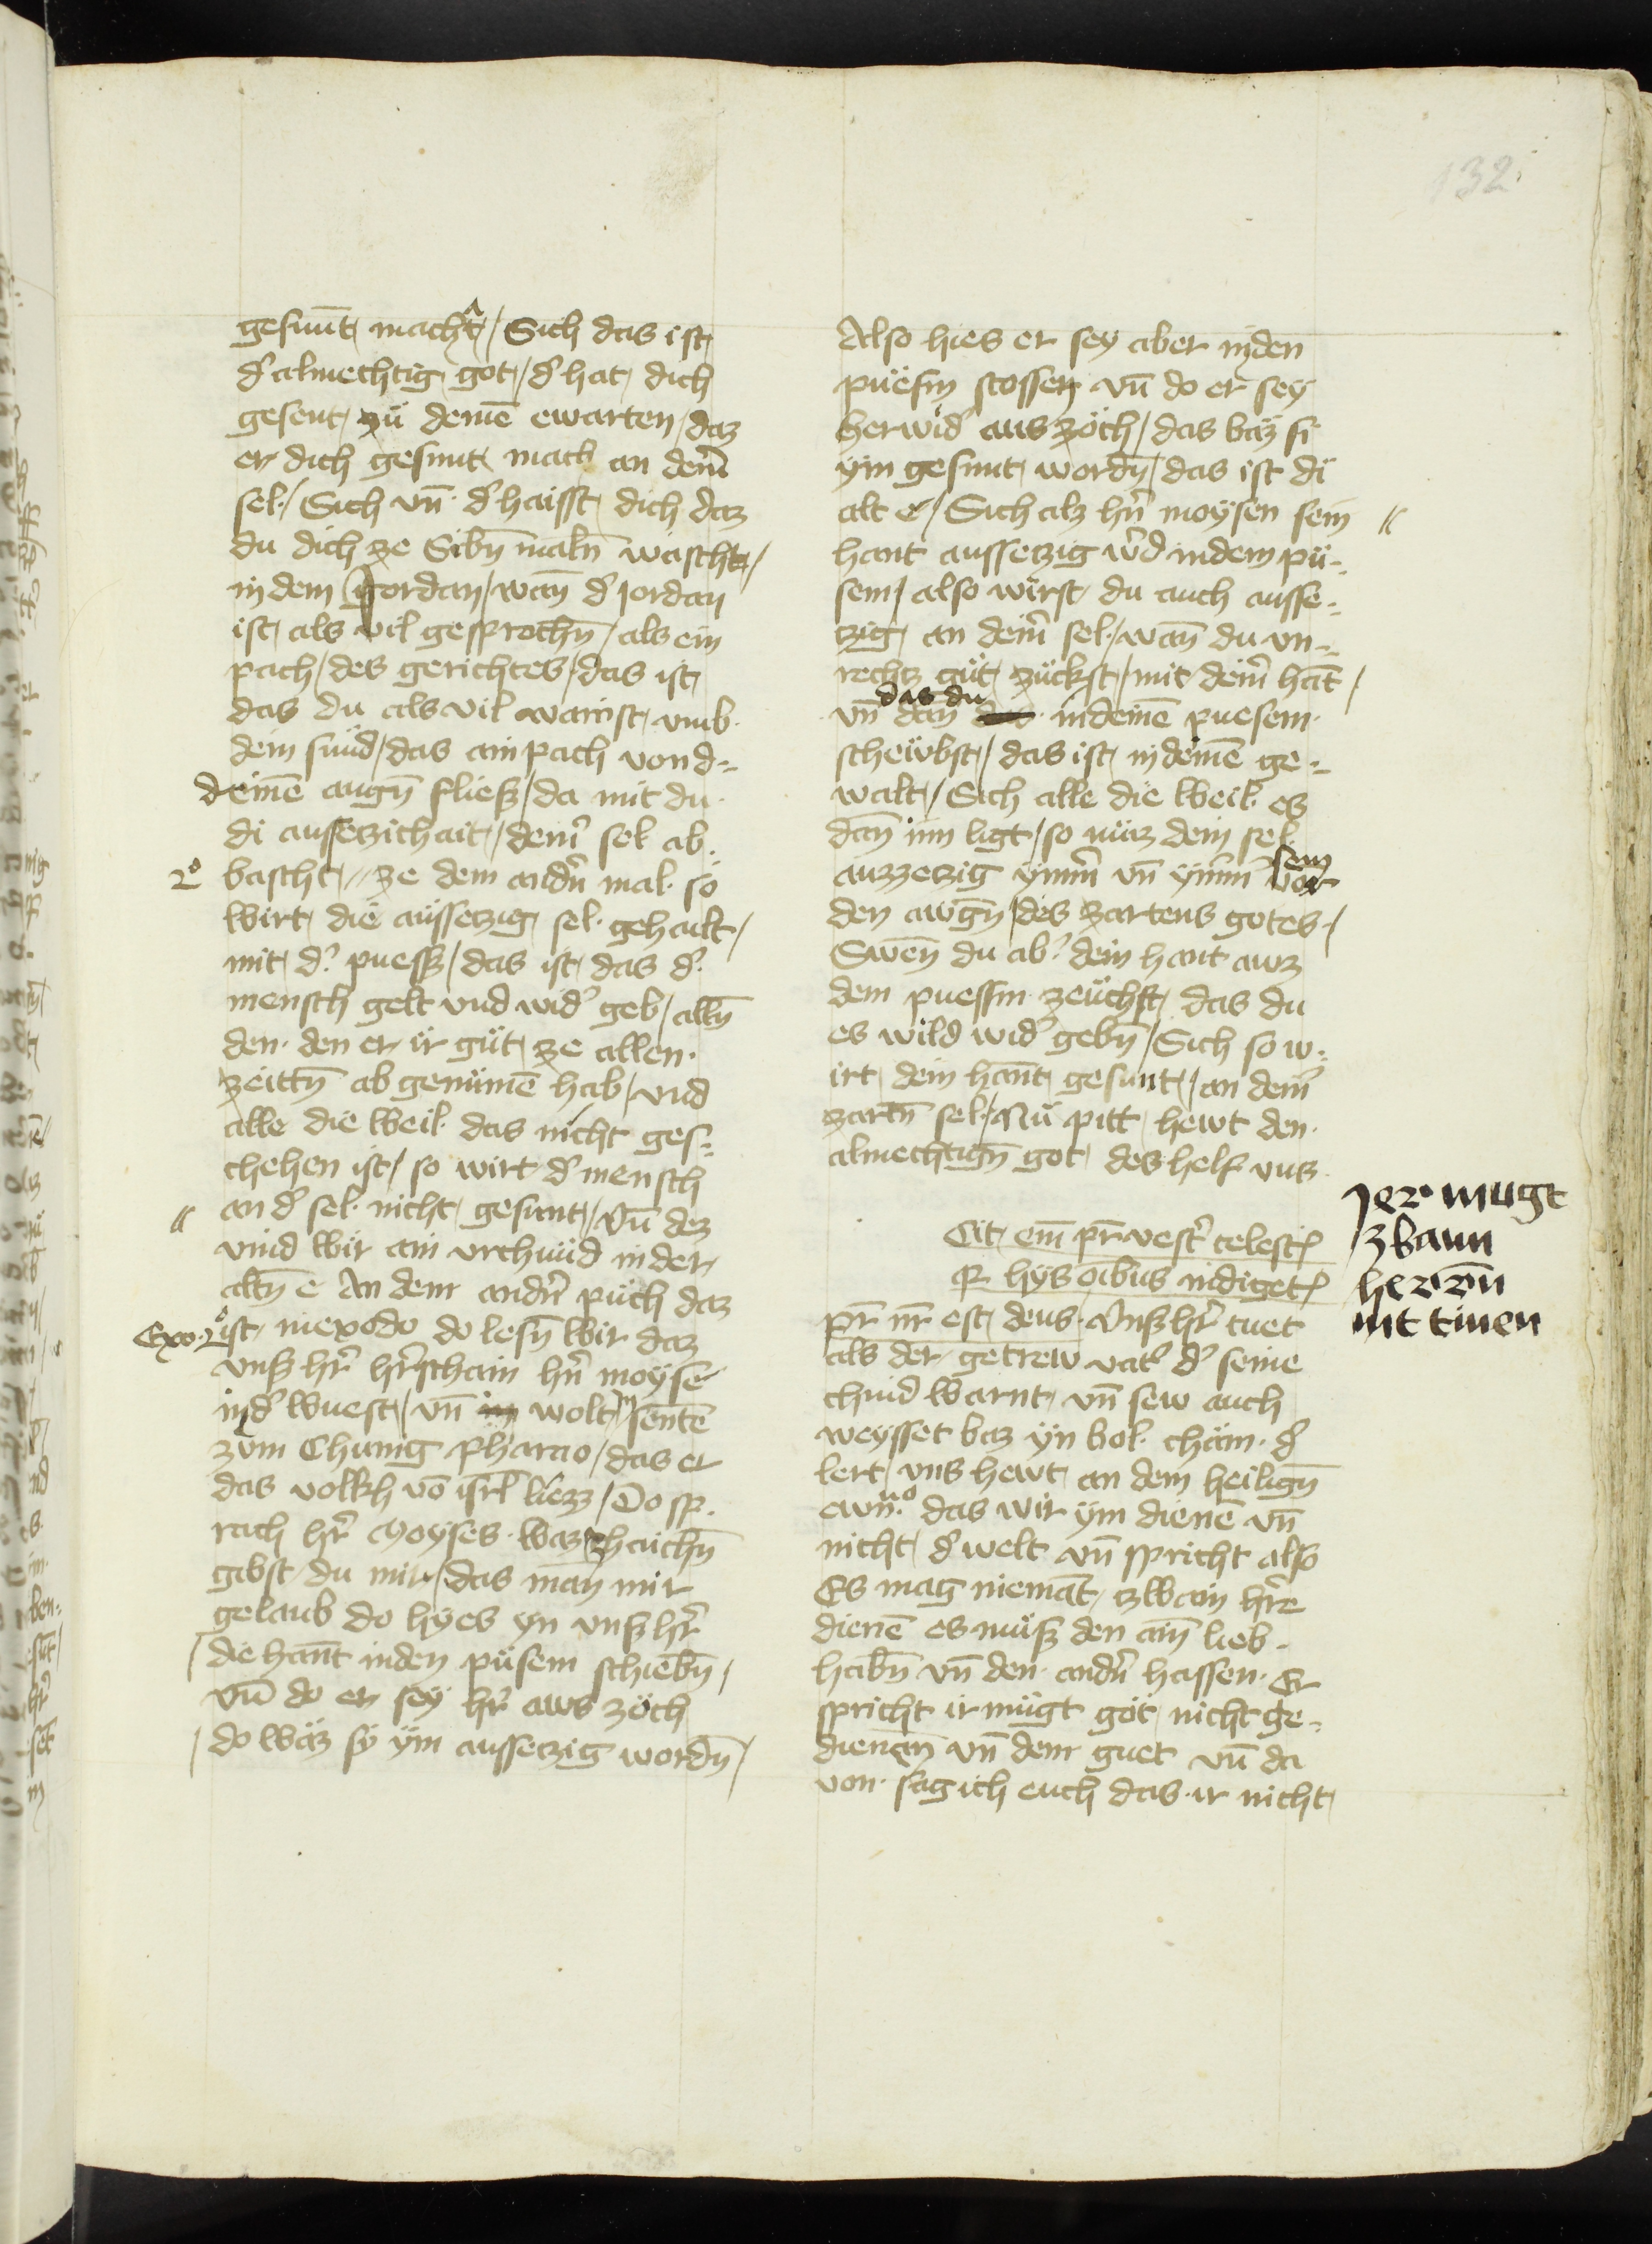 132
gesunt macht / Sich das ist
d' almechtig got / d' hat dich
gesent zü deinē ewarten / daz
er dich gesunt mach an dein̄
sel / Sich vn̄ d' haisst dich daz
du dich ze Sibn̄ maln̄ wascht /
in dem Jordan / wan̄ d' Jordan
ist als vil gesprochn̄ / als ein
pach / des gerichtes / das ist
das du als vil wainst vmb
dein sünd / das ain pach von d=
deinē augn̄ fliesz / da mit du
di aussetzichait / dein' sel ab=
2° bascht // ze dem andn̄ mal so
wirt die aüssetzig sel gehailt /
mit d' puessz / das ist das d'
mensch gelt vnd wid' geb / alln̄
den den er ir güt ze allen
zeittn̄ ab genümē hab / vnd
alle die weil das nicht ges=
chehen ist / so wirt d' mensch
an d' sel nicht gesunt / Vn̄ dez
vind wir ain vrchünd in der
altn̄ e An dem andn̄ püch daz
Exo. 2° ist in exodo do lesn̄ wir daz
vnsz hr̄ hr̄schain hn̄ moysē
in d' wuest / vn̄ wolt in sentē
züm Chunig pharao / das er
das volkh vō isrl̄ liezz / Do sp=
rach hr̄ Moyses waz zhaichn̄
gibst du mir / das man mir
gelaub do hyes yn vnsz hr̄
die hant in den püsem schiebn̄ /
vn̄ do er sey hr̄ aws zöch
do waz sy ym aussetzig wordn̄ /
Also hies er sey aber in den
püesm stossen vn̄ do er sey
herwid' aus zöch / das baz si
ym gesunt wordn̄ / das ist di
alt e / Sich alz hn̄ moysen sein
hant aussetzig w'd in dem pü=
sem / also wirst du auch ausse=
tzig an dein' sel / wan̄ du vn=
rechtz güt zückst / mit dein' hāt /
das du
vn̄ dan̄ in deinē puesem
schewbst / das ist in deinē ge=
walt / Sich alle die weil es
dan̄ inn ligt / so müz dein sel
sein
auzzetzig ymm' vn̄ ymm' vor
den awgn̄ / des zartens gotes /
Swen̄ du ab' dein hant awz
dem puessm zeüchst das du
es wild wid' gebn̄ / Sich so w=
irt dein hant gesunt / an dein'
zartn̄ sel / Nü pitt hewt den
almechtign̄ got des helf vns
Cit em̄ pr̄ vest' celest'
q hys oībus indiget'
pr̄ nr̄ est deus. Vnsz hr̄ tuet
als der getrew vat' d' seine
chind warnt vn̄ sew auch
weysset baz yn wol chäm d'
lert vns hewt an dem heilign̄
ewn̄° das wir ym dienē vn̄
nicht d' welt vn̄ spricht also
Es mag niemāt zwain hr̄e
dienē es müsz den ain̄ lieb
habn̄ vn̄ den andn̄ hassen Er
spricht ir mügt got nicht ge=
dienen̄ vn̄ dem guet vn̄ da
von sag ich euch das ir nicht
Jer mugt
zbaun
herrn̄
nit tinen